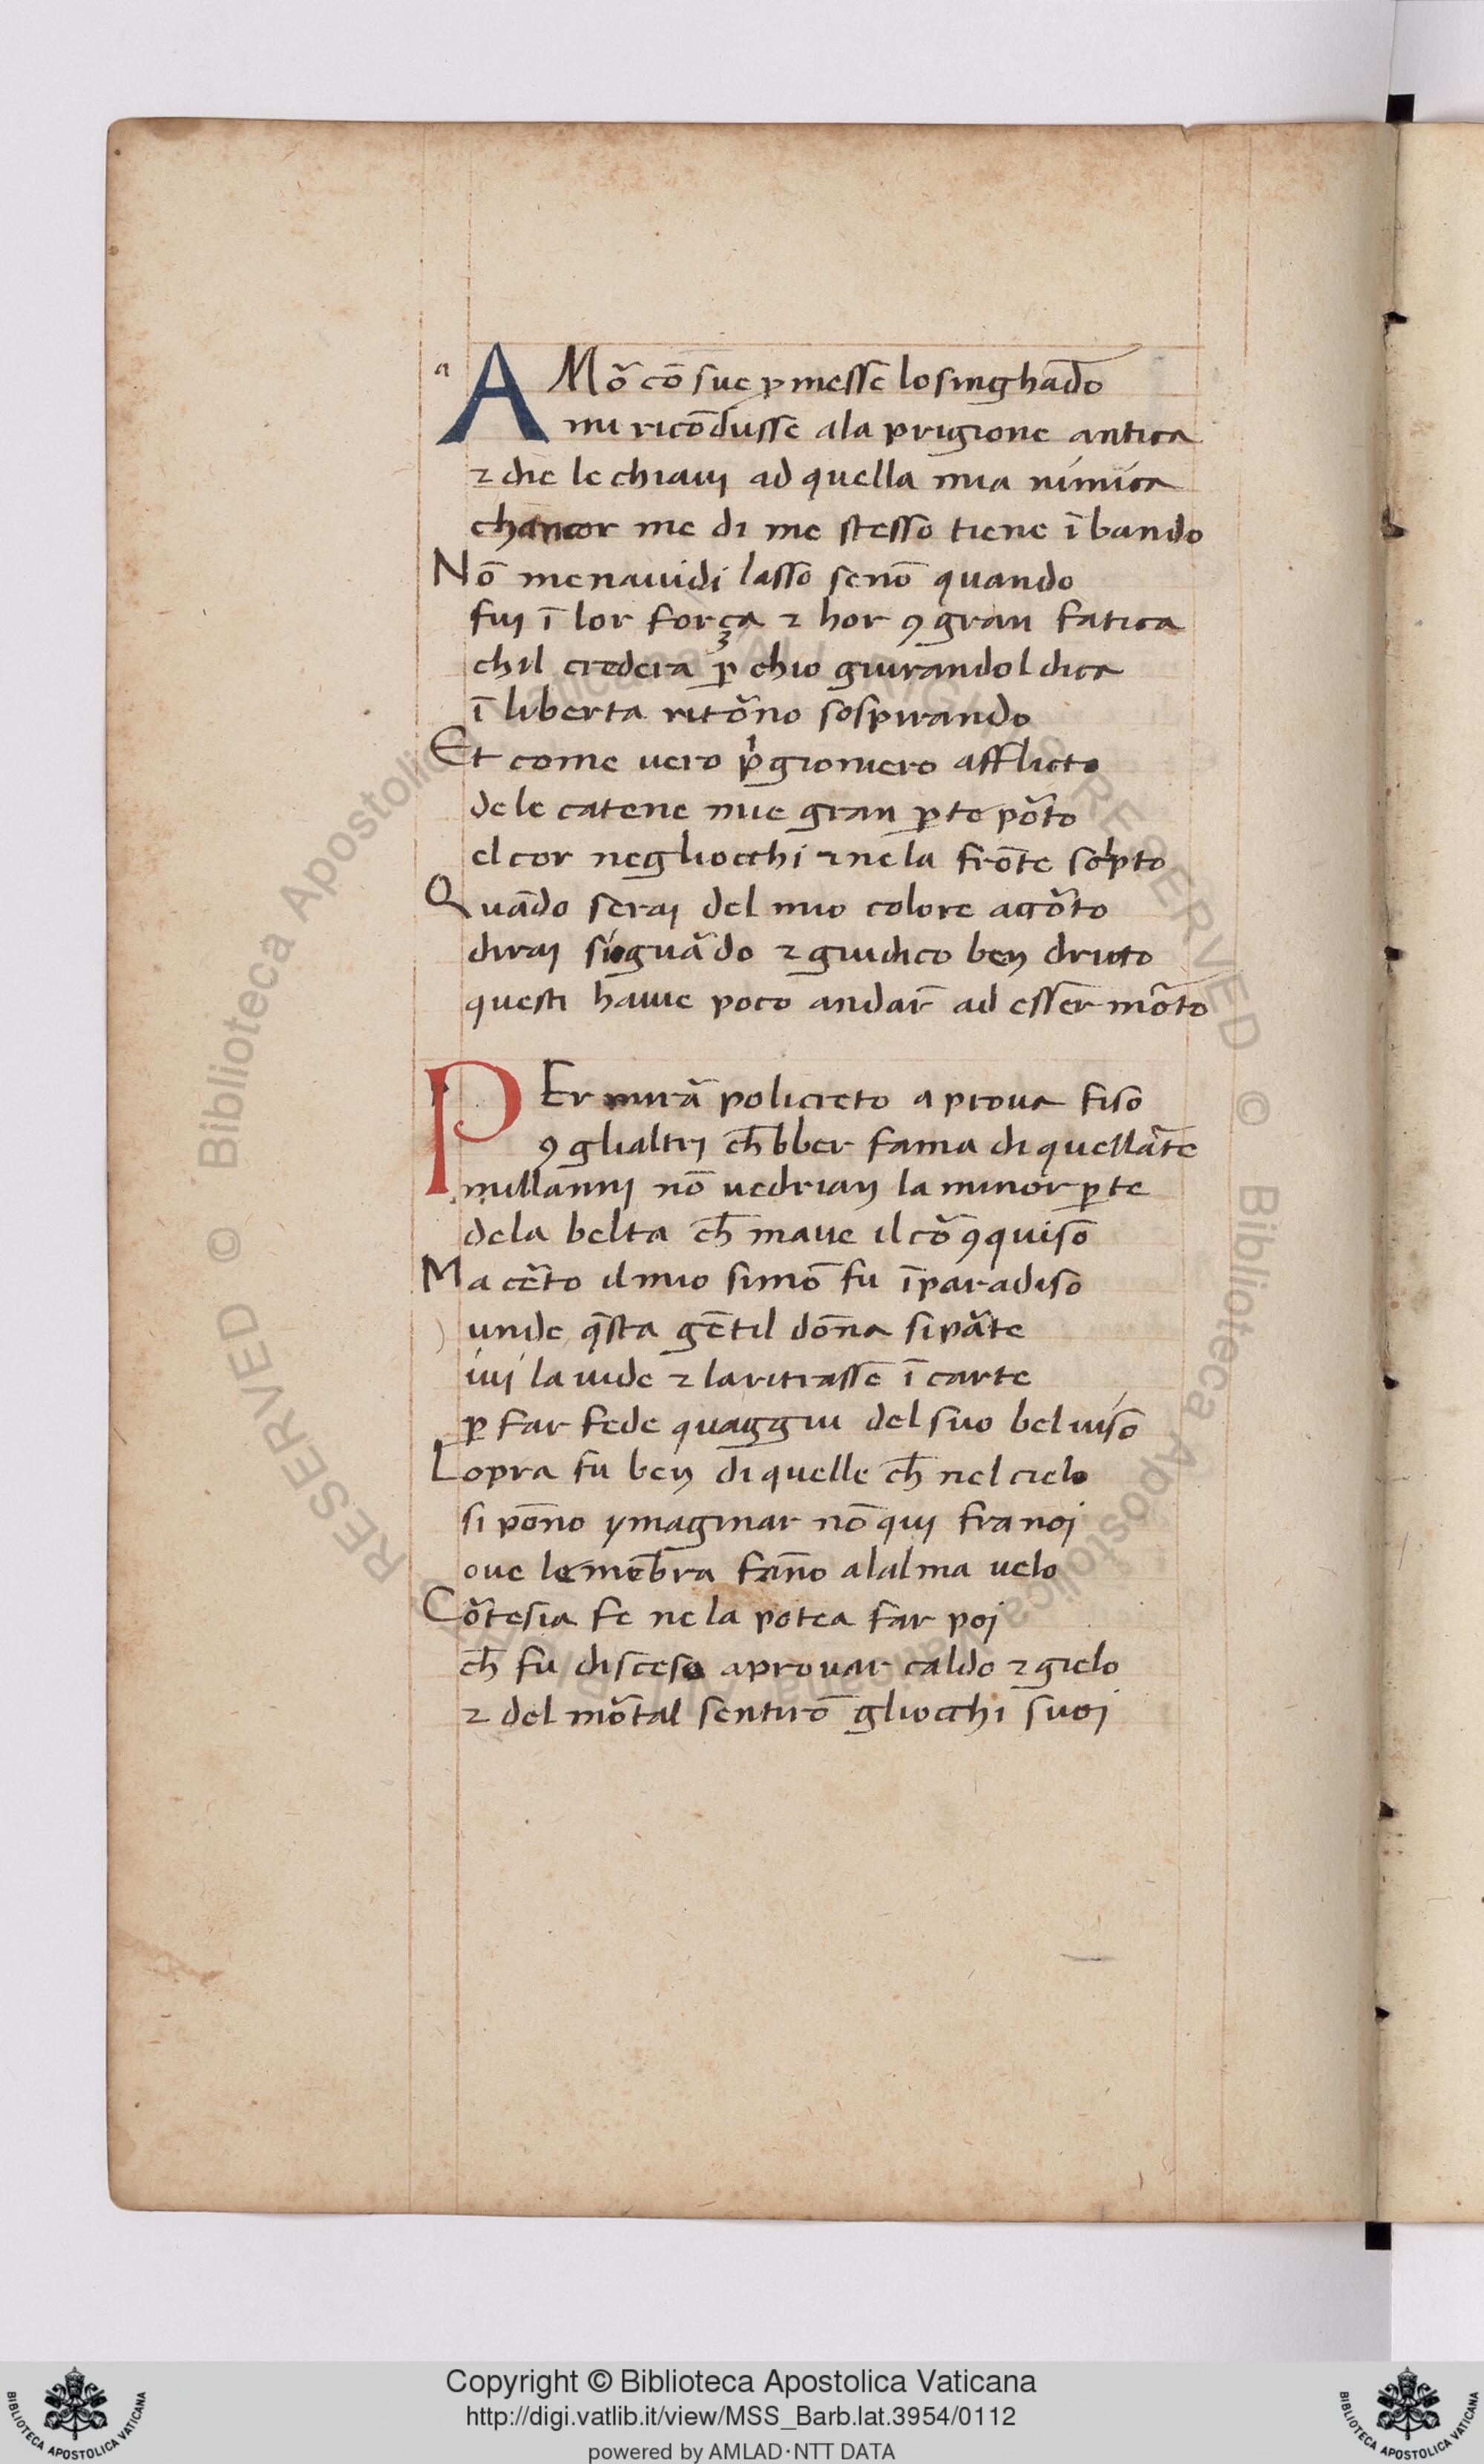 a
AMor̃ cō sue ꝓmesse losinghādo
mi ricōdusse ala prigione antica
⁊ die le chiauj ad quella mia nimica
chancor me di me stesso tiene ī bando
Nō menauidi lasso senō quando
fuj ī lor força ⁊ hor ꝯ gran fatica
chil crederà ꝑchio giurandol dica
ī liberta ritor̃no sospirando
Et come uero pⁱgioniero afflicto
dele catene mie gran ꝑte por̃to
el cor negliocchi ⁊ nela frōte scͥpto
Quādo seraj del mio colore acor̃to
diraj sioguar̃do ⁊ giudico ben dricto
questi haue poco andar̃ ad esser mor̃to
PEr mirar̃ policreto a proua fiso
ꝯ glialtrj ch̄bber fama di quellar̃te
millannj nō uedrian la minor ꝑte
dela belta ch̄ maue il cor̃ ꝯquiso
Ma cer̃to il mio simō fu ī paradiso
unde q̄sta gētil dōna si par̃te
iuj la uide ⁊ laritrasse ī carte
ꝑ far fede quaggiu del suo bel uiso
Lopra fu ben di quelle ch̄ nel cielo
si pōno ymaginar nō quj fra noj
oue lemēbra fāno alalma uelo
Cor̃tesia fe ne la potea far poj
ch̄ fu disceso aprouar caldo ⁊ gielo
⁊ del mor̃tal sentirō gliocchi suoj
© Biblioteca Apostolica Vaticana ALL RIGHTS RESERVED © Biblioteca Apostolica Vaticana ALL RIGHTS RESERVED
Copyright © Biblioteca Apostolica Vaticana
http://digi.vatlib.it/view/MSS_Barb.lat.3954/0112
powered by AMLAD·NTT DATA
BIBLIOTECA APOSTOLICA VATICANA
BIBLIOTECA APOSTOLICA VATICANA